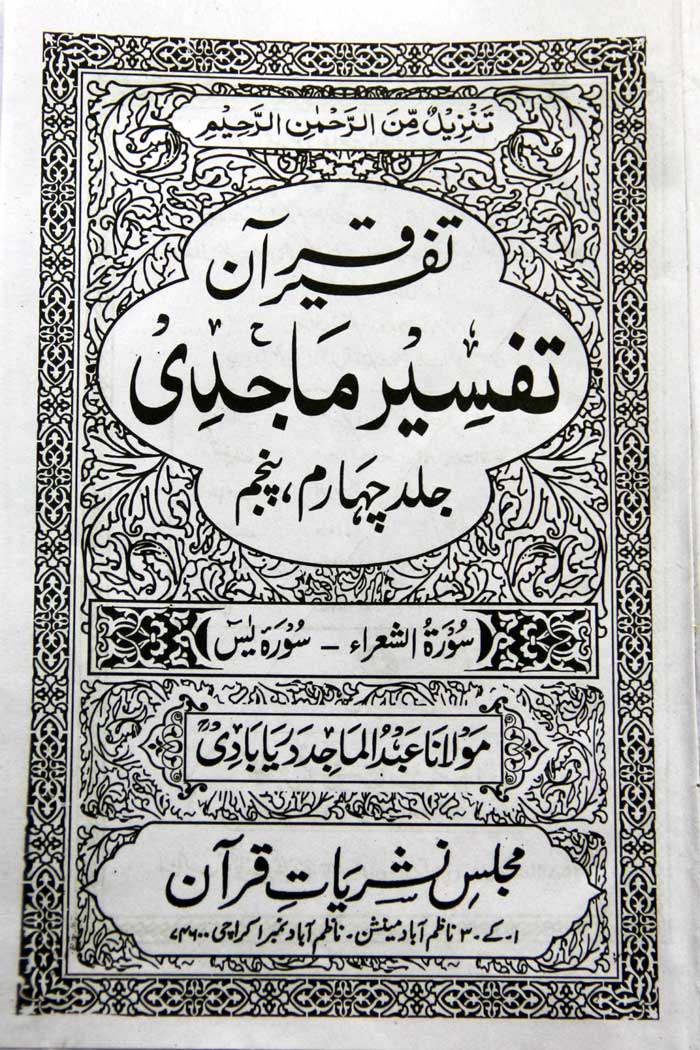 تَنْزِيلٌ مِّنَ الرَّحْمٰنِ الرَّحِيْمِ
تفسیر قرآن
تفسیر ماجدی
جلد چہارم، پنجم
سُوْرَةُ الشعراء - سُوْرَة یٰسٓ
مَولانا عَبدُ الماجد دَریابادیؒ
مجلسِ نشریاتِ قرآن
۱۔ کے ۔ ۳ ناظم آباد مینشن ۔ ناظم آباد نمبر ۱ کراچی ۷۴۶۰۰